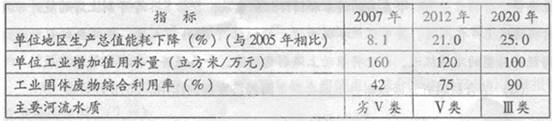 指 标 2007年 2012年 2020年
单位地区生产总值能耗下降(%)(与2005年相比) 8.1 21.0 25.0
单位工业增加值用水量(立方米/万元) 160 120 100
工业固体废物综合利用率(%) 42 75 90
主要河流水质 劣Ⅴ类 Ⅴ类 Ⅲ类